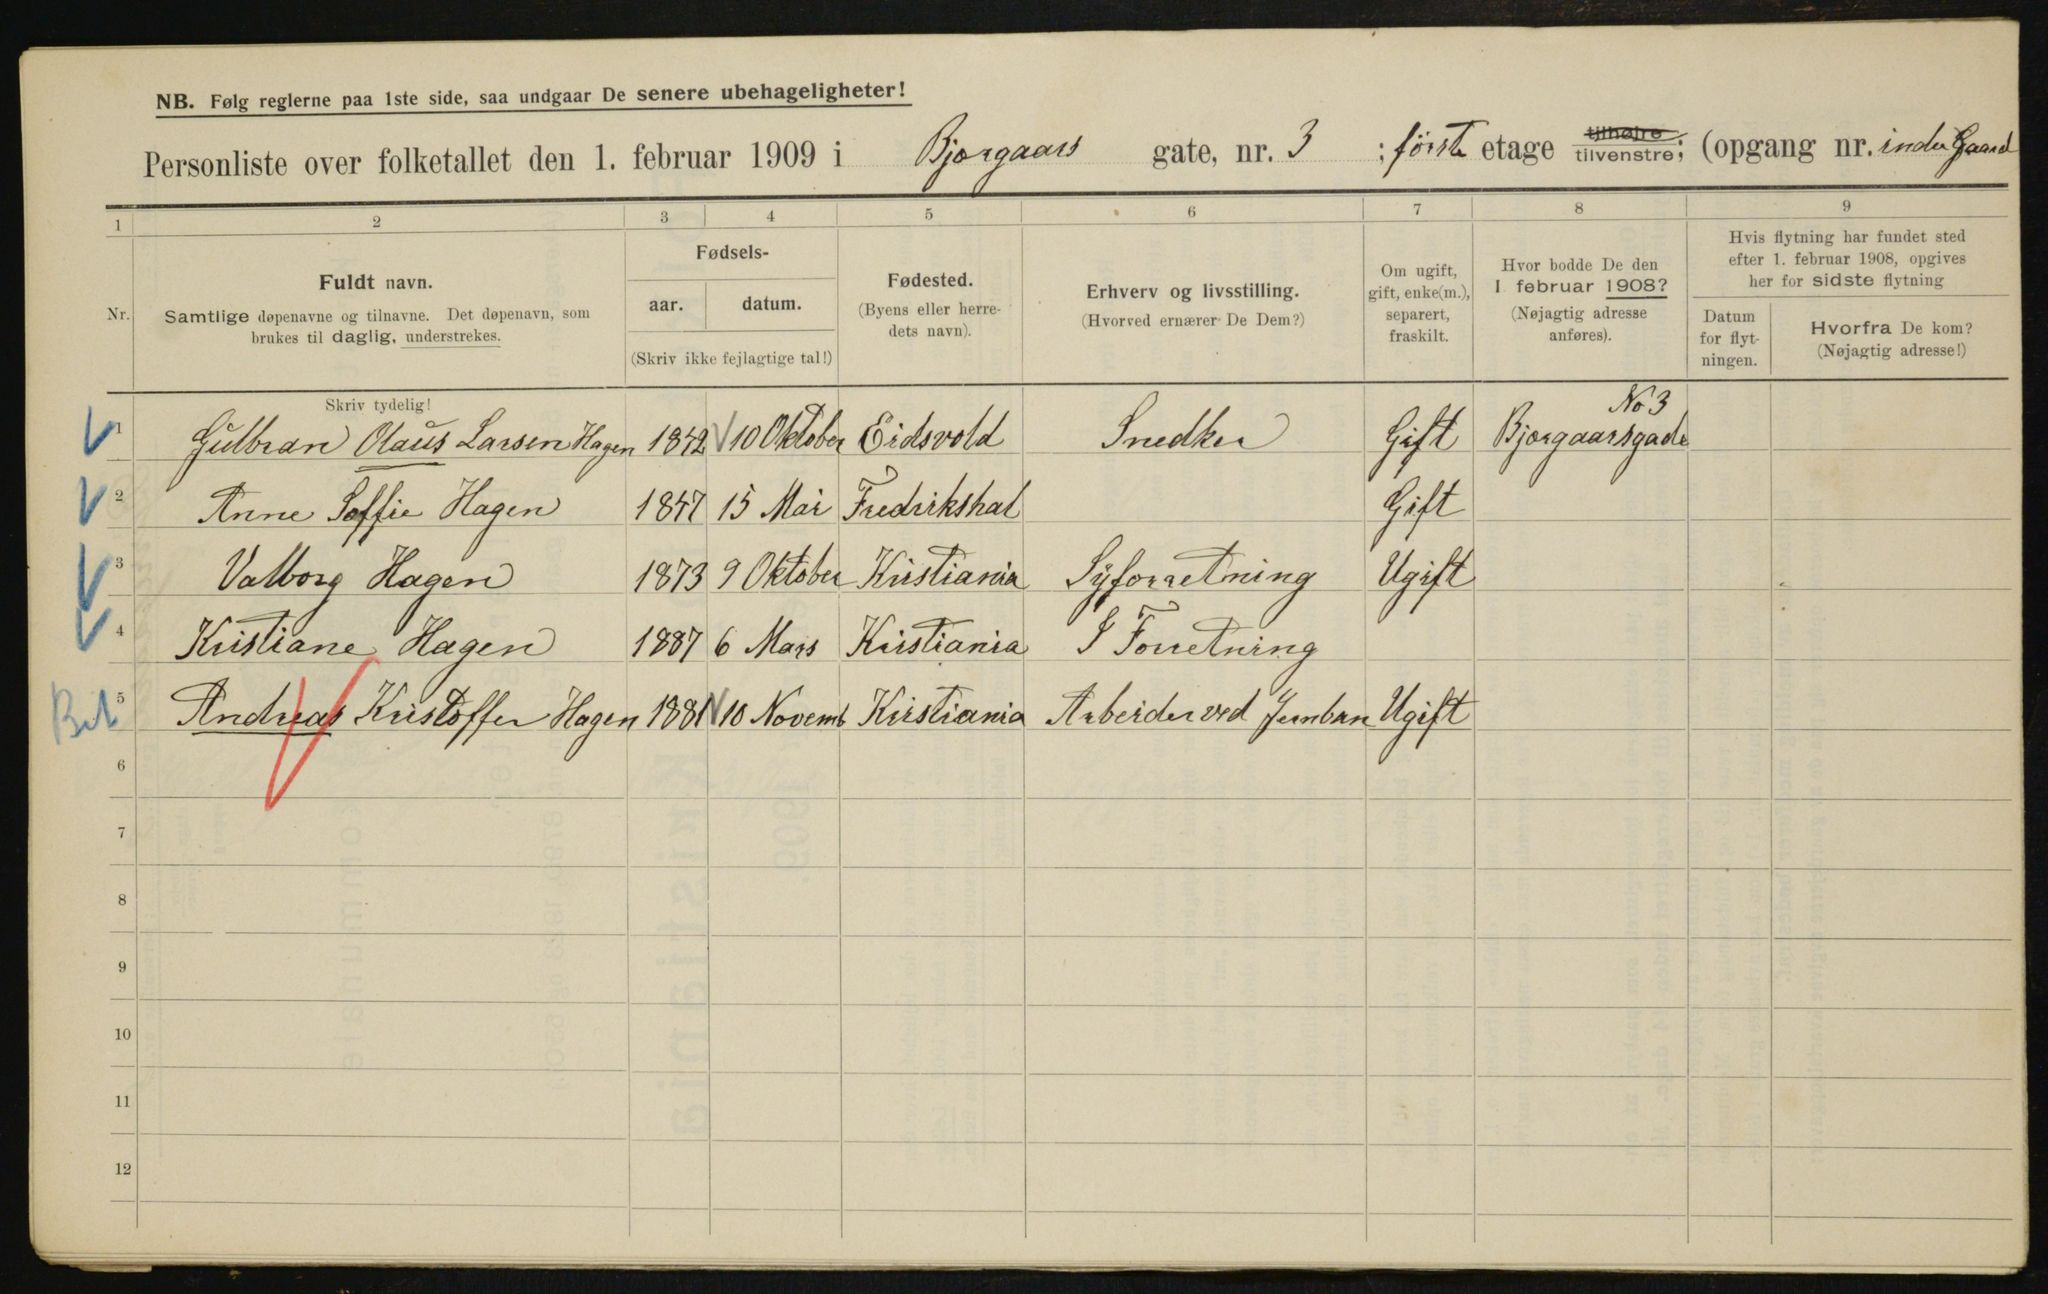 NB. Følg reglerne paa 1ste side, saa undgaar De senere ubehageligheter!
Personliste over folketallet den 1. februar 1909 i Bjørgaars gate, nr. 3 ; første etage tilhøjre tilvenstre; (opgang nr. indre Gaard
1 2 3 4 5 6 7 8 9
Nr.
Fuldt navn.
Samtlige døpenavne og tilnavne. Det døpenavn, som
brukes til daglig, understrekes.
Skriv tydelig!
Fødsels-
aar. datum.
(Skriv ikke fejlagtige tal!)
Fødested.
(Byens eller herre-
dets navn).
Erhverv og livsstilling.
(Hvorved ernærer De Dem?)
Om ugift,
gift, enke(m.),
separert,
fraskilt.
Hvor bodde De den
1 februar 1908?
(Nøjagtig adresse
anføres).
Hvis flytning har fundet sted
efter 1. februar 1908, opgives
her for sidste flytning
Datum
for flyt-
ningen.
Hvorfra De kom?
(Nøjagtig adresse!)
1 Gulbran Olaus Larsen Hagen 1842 10 Oktober Eidsvold Snedker Gift Bjørgaarsgade No 3
2 Anne Soffie Hagen 1847 15 Mai Fredrikshal Gift
3 Valborg Hagen 1873 9 Oktober Kristiania Syforretning Ugift
4 Kristiane Hagen 1887 6 Mars Kristiania I Forretning
5 Andreas Kristoffer Hagen 1881 10 Novemb Kristiania Arbeider ved Jernban Ugift
6
7
8
9
10
11
12